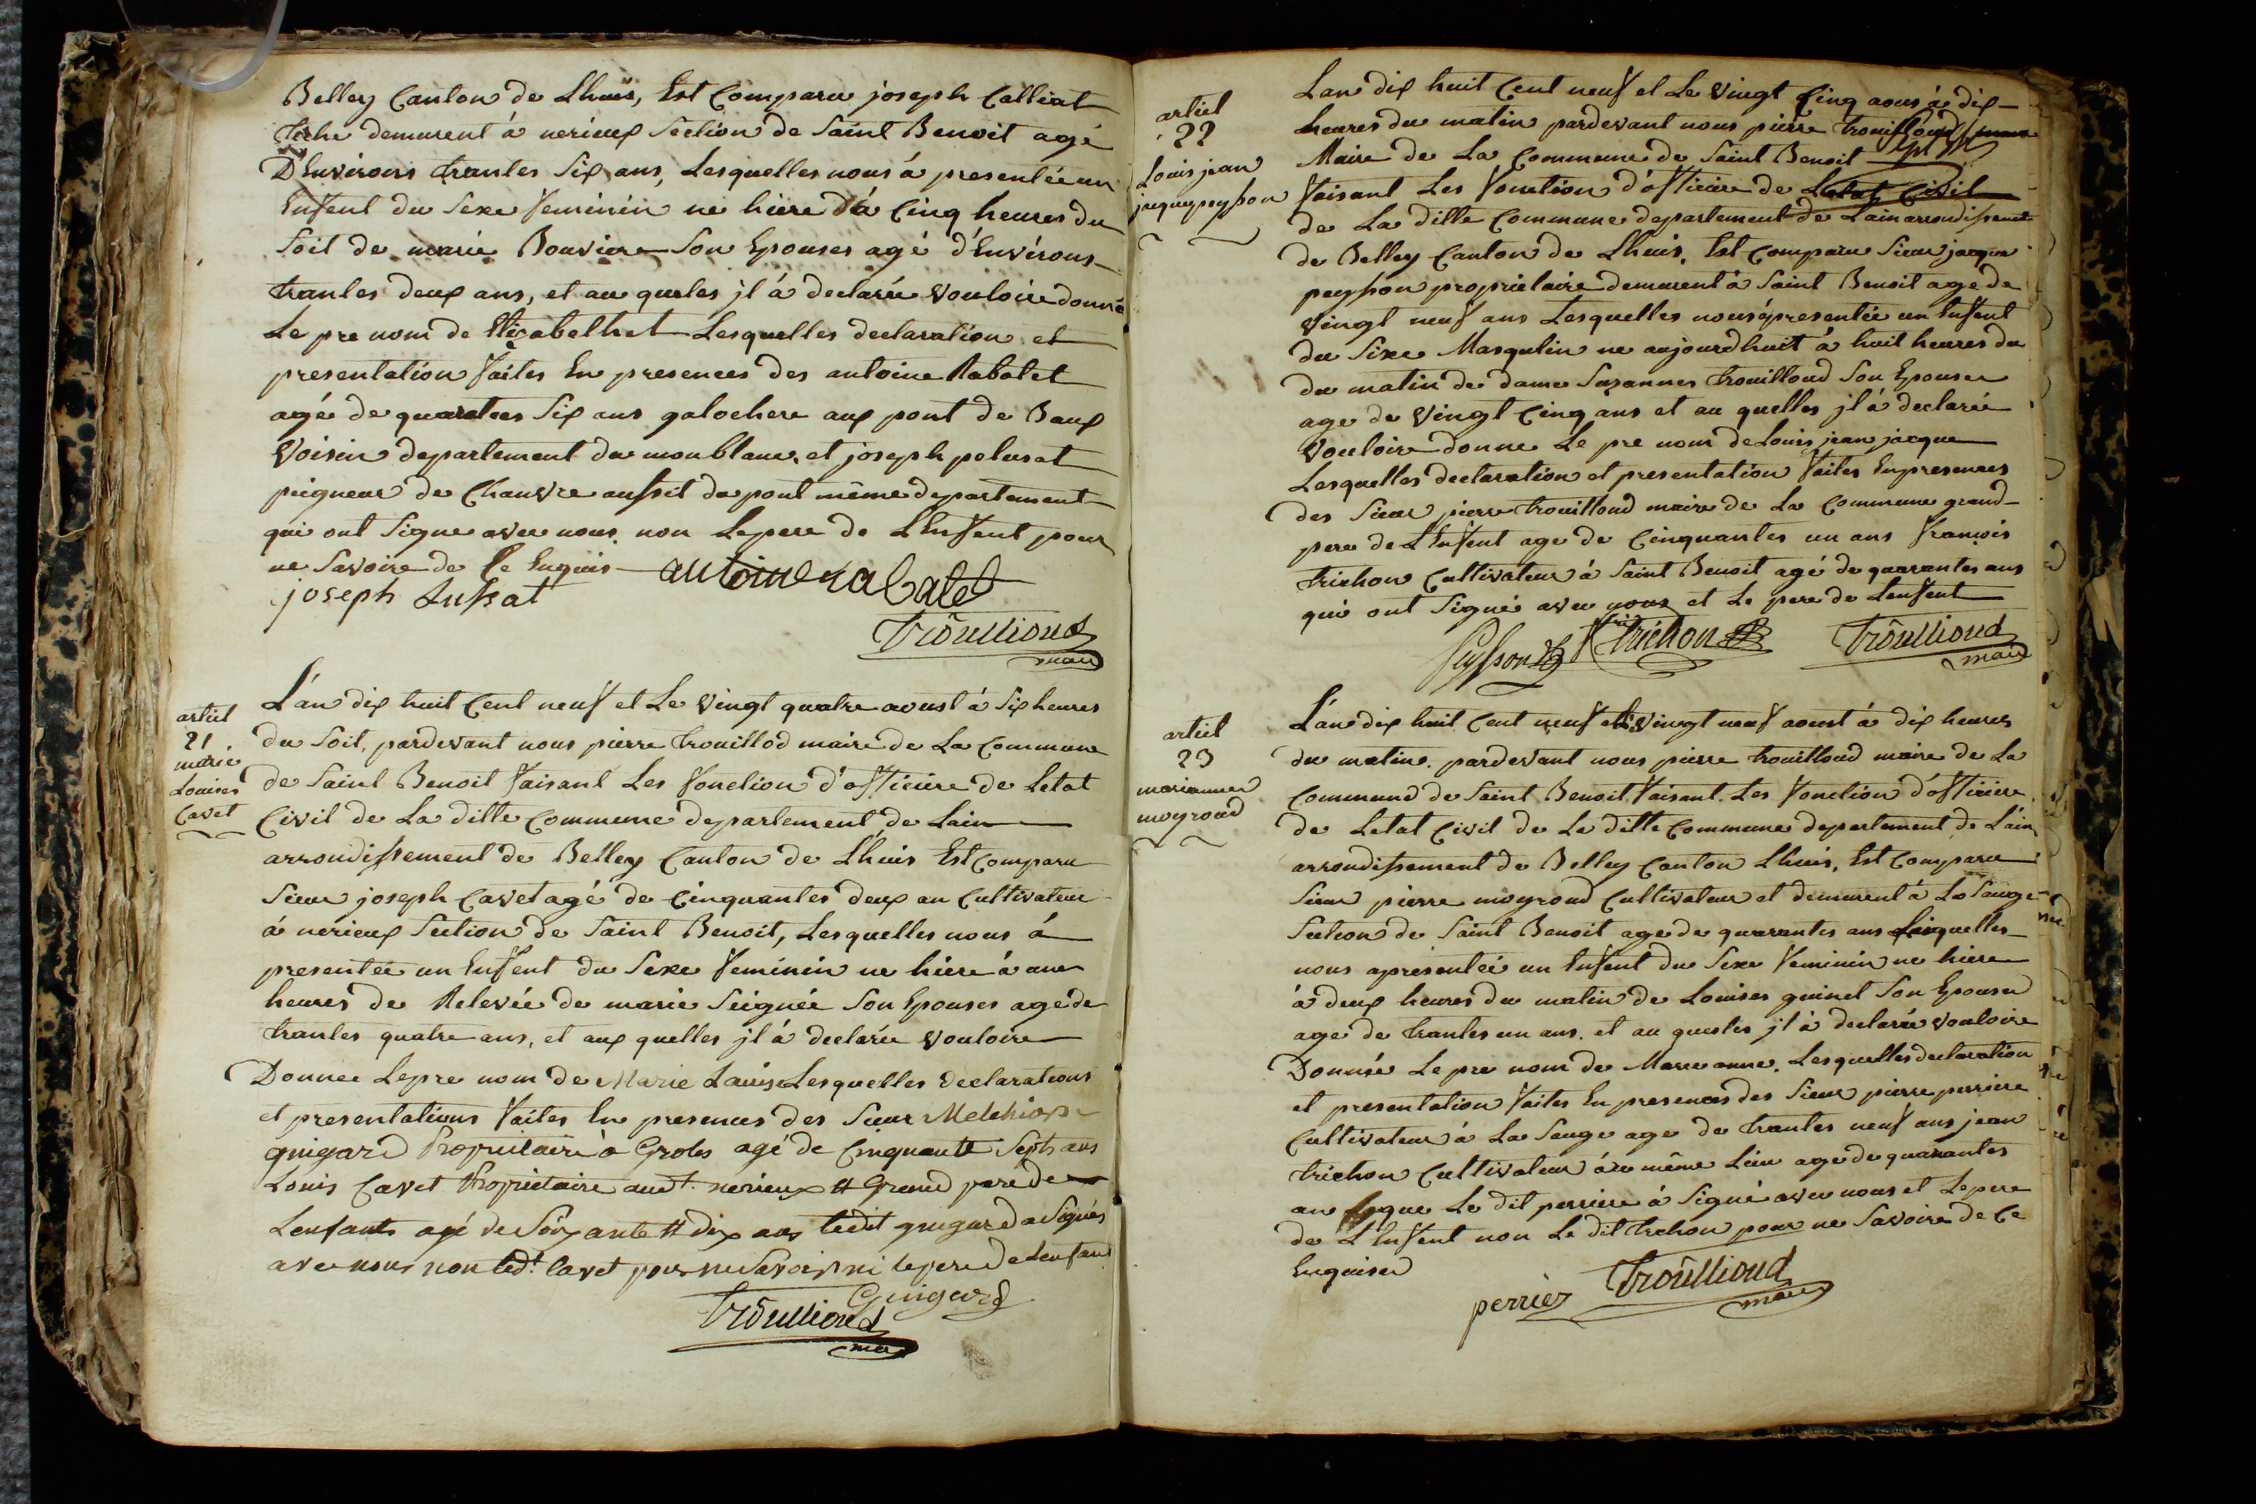 Belley Canton de Lhuis, Est Comparu joseph Calliat
demurent à nerieux Section de Saint Benoit agé
D'Environs trantes Six ans, Lesquelles nous à presentée un
Enfent du Sexe feminin ne hiere à Cinq heures du
Soit de marie Bouvier Son Epouses agé d'Environs
trantes deux ans, et au queles jl à declarée vouloire donné
Le pre nom de Elizabethet Lesquelles declaration et
presentation faites En presences des antoine Rabatet
agé de quarantes Six ans galochere aux pont de Baux
Voisin departement du monblanc, et joseph pelusat
peigneur de Chanvre aussit du pont même departement
qui ont Signe avec nous non Lepere de L'Enfent pour
ne Savoire de Ce Enquis antoine rabatet
joseph Lussat
Troullioud
maire
artiel
21
marie
Louises
Cavet
L'an dix huit Cent neuf et Le vingt quatre aoust à Six heures
du Soit, pardevant nous pierre trouillod maire de La Commune
de Saint Benoit faisant Les fonction d'officiere de Letat
Civil de La ditte Commune departement de Lain
arrondissement de Belley Canton de Lhuis Est Comparu
Sieur joseph Cavet agé de Cinquantes deux an Cultivateur
à nerieux Section de Saint Benoit, Lesquelles nous à
presentée un Enfent du Sexe feminin ne hiere à une
heures de Relevée de marie Seignée Son Epouses age de
trantes quatre ans, et aux quelles jl à declarée vouloire
Donnee Lepre nom de Marie Louise Lesquelles declarations
et presentations faites En presences des Sieur Melchior
guigard Propriétaire à Groles agé de Cinquante Sept ans
Louis Cavet Propriétaire aud.t nerieux et Grand pere de
Lenfant agé de Soixante et dix ans ledit guigard a Signés
avec nous non led.t Cavet pour ne Savoir ni le pere de Lenfant
Guigard
Troullioud
maire
artiel
22
Louis jean
jacque peysson
Lan dix huit Cent neuf et Le vingt Cinq aous à dix
heures du matin pardevant nous pierre trouilloud
Maire de La Commune de Saint Benoit
faisant Les fonction d'officiere de Letat Civil
de La ditte Commune departement de Lain arrondissement
de Belley Canton de Lhuis, Est Comparu Sieur jacque
peysson propriétaire demurent à Saint Benoit age de
vingt neuf ans Lesquelles nous à presentée un Enfent
du Sexe Masqulin ne aujourdhuit à huit heures du
du matin de dame Suzannes trouilloud Son Epouse
age de vingt Cinq ans et au quelles jl à declarée
vouloire donne Le pre nom de Louis jean jacque
Lesquelles declaration et presentation faites En presences
des Sieur pierre trouilloud maire de La Commune grand
pere de L'Enfent age de Cinquantes un ans francois
trichon Cultivateur à Saint Benoit agé de quarantes ans
qui ont Signée avec nous et Le pere de Lenfent
Peysson trichon Troullioud
maire
artiel
23
mariannes
moyroud
L'an dix huit Cent neuf et Le vingt neuf aoust à dix heures
du matin pardevant nous pierre trouilloud maire de La
Commune de Saint Benoit faisant Les fonction d'officiere
de Letat Civil de La ditte Commune departement de L'ain
arrondissement de Belley Canton Lhuis, Est Comparu
Sieur pierre moyroud Cultivateur et demurent à La Sauge
Section de Saint Benoit age de quarantes ans Lesquelles
nous apresentée un Enfent du Sexe feminin ne hiere
à deux heures du matin de Louises quinet Son Epouse
age de trantes un ans et au queles jl à declarée vouloire
Donnée Le pre nom de Marie anne, Lesquelles declaration
et presentation faites En presences des Sieur pierre perriere
Cultivateur à La Sauge age de trantes neuf ans jean
trichon Cultivateur à u même Lieu age de quarantes
an Le dit perriere à Signé avec nous et Le pere
de L'Enfent non Le dit trichon pour ne Savoire de Ce
Enquise
perrier Troullioud
maire